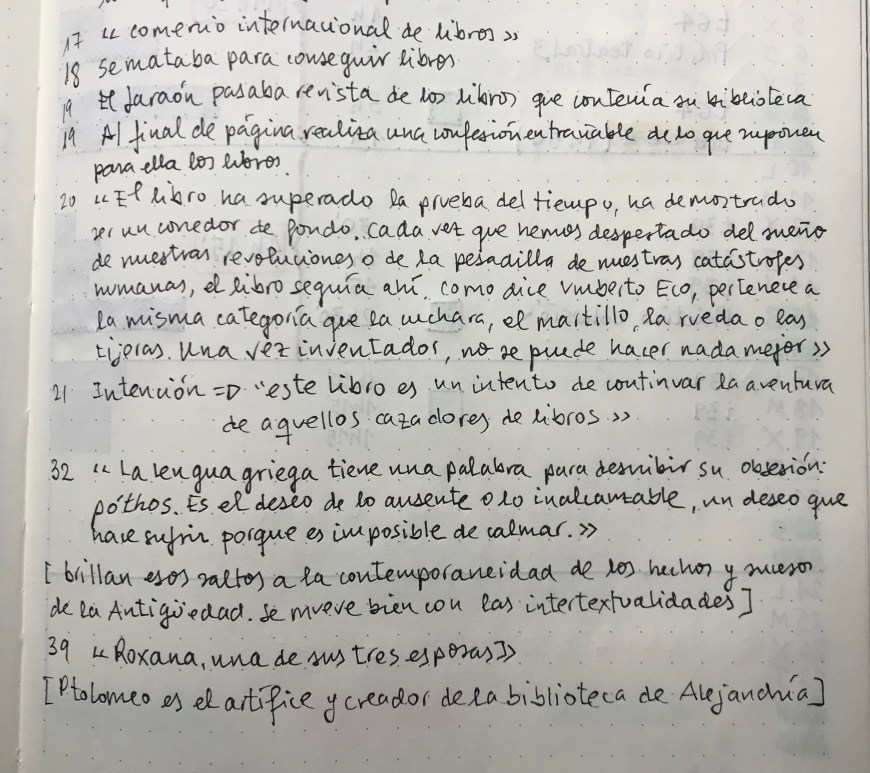 17 « comercio internacional de libros »
18 Se mataba para conseguir libros
19 El faraón pasaba revista de los libros que contenía su biblioteca
19 Al final de página realiza una confesión entrañable de lo que suponen
para ella los libros.
20 « El libro ha superado la prueba del tiempo, ha demostrado
ser un corredor de fondo. Cada vez que hemos despertado del sueño
de nuestras revoluciones o de la pesadilla de nuestras catástrofes
humanas, el libro seguía ahí. Como dice Umberto Eco, pertenece a
la misma categoría que la cuchara, el martillo, la rueda o las
tijeras. Una vez inventados, no se puede hacer nada mejor »
21 Intención => "este libro es un intento de continuar la aventura
de aquellos cazadores de libros »
32 « La lengua griega tiene una palabra para describir su obsesión:
póthos. Es el deseo de lo ausente o lo inalcanzable, un deseo que
hace sufrir porque es imposible de calmar. »
[ brillan esos saltos a la contemporaneidad de los hechos y sucesos
de la Antigüedad. Se mueve bien con las intertextualidades ]
39 « Roxana, una de sus tres esposas ]»
[ Ptolomeo es el artífice y creador de la biblioteca de Alejandría ]